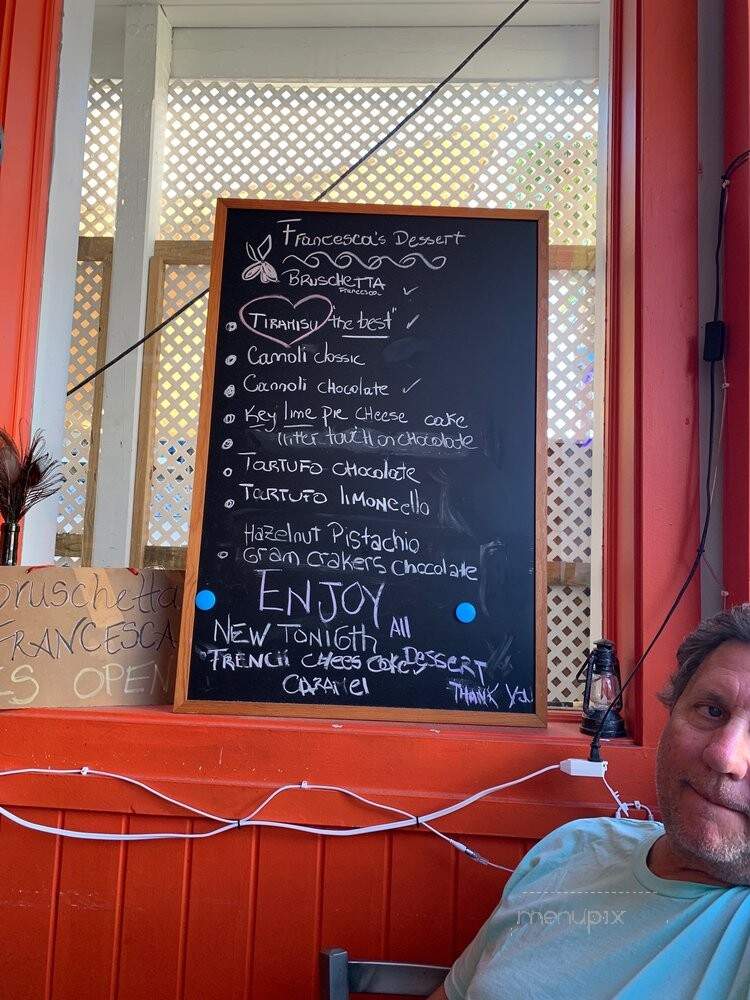 Francesca's Dessert
BRUSCHETTA
Francesca
TIRAMISU "the best"
Cannoli classic
Cannoli chocolate
Key lime pie CHeese cake
inter touch on CHocolate
TARTUFO CHOCOLATE
TARTUFO limoncello
Hazelnut Pistachio
Gram Crakers Chocolate
ENJOY
All
NEW TONIGTH
DESSERT
FRENCH CHEES CAKE
CARAMEl
THANK YOU
bruschetta
FRANCESCA
IS OPEN
menupix